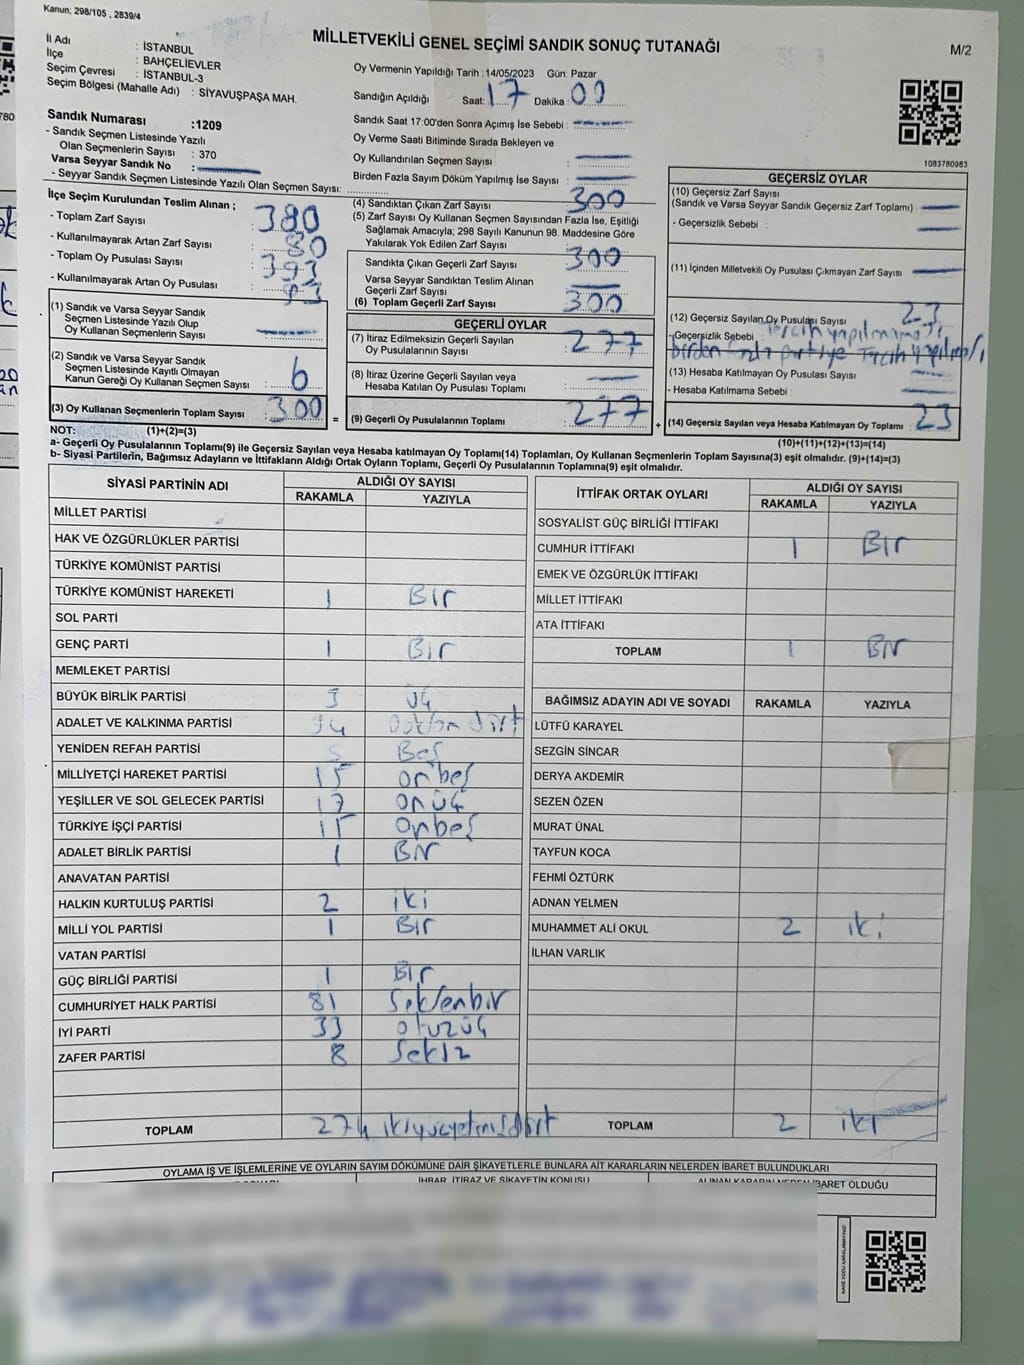 Kanun; 298/105 , 2839/4
MİLLETVEKİLİ GENEL SEÇİMİ SANDIK SONUÇ TUTANAĞI
M/2
İl Adı : İSTANBUL
İlçe : BAHÇELİEVLER
Seçim Çevresi : İSTANBUL-3
Seçim Bölgesi (Mahalle Adı) : SİYAVUŞPAŞA MAH.
Oy Vermenin Yapıldığı Tarih :14/05/2023 Gün: Pazar
Sandığın Açıldığı Saat: 17 Dakika : 00
Sandık Saat 17:00'den Sonra Açımış İse Sebebi :
Oy Verme Saati Bitiminde Sırada Bekleyen ve
Oy Kullandırılan Seçmen Sayısı :
Birden Fazla Sayım Döküm Yapılmış İse Sayısı :
1083780983
Sandık Numarası :1209
- Sandık Seçmen Listesinde Yazılı
Olan Seçmenlerin Sayısı : 370
Varsa Seyyar Sandık No :
- Seyyar Sandık Seçmen Listesinde Yazılı Olan Seçmen Sayısı:
İlçe Seçim Kurulundan Teslim Alınan ;
- Toplam Zarf Sayısı : 380
- Kullanılmayarak Artan Zarf Sayısı : 80
- Toplam Oy Pusulası Sayısı : 393
- Kullanılmayarak Artan Oy Pusulası : 93
(1) Sandık ve Varsa Seyyar Sandık
Seçmen Listesinde Yazılı Olup
Oy Kullanan Seçmenlerin Sayısı :
(2) Sandık ve Varsa Seyyar Sandık
Seçmen Listesinde Kayıtlı Olmayan
Kanun Gereği Oy Kullanan Seçmen Sayısı : 6
(3) Oy Kullanan Seçmenlerin Toplam Sayısı : 300 =
(4) Sandıktan Çıkan Zarf Sayısı : 300
(5) Zarf Sayısı Oy Kullanan Seçmen Sayısından Fazla İse, Eşitliği
Sağlamak Amacıyla; 298 Sayılı Kanunun 98. Maddesine Göre
Yakılarak Yok Edilen Zarf Sayısı :
Sandıkta Çıkan Geçerli Zarf Sayısı : 300
Varsa Seyyar Sandıktan Teslim Alınan
Geçerli Zarf Sayısı :
(6) Toplam Geçerli Zarf Sayısı : 300
GEÇERLİ OYLAR
(7) İtiraz Edilmeksizin Geçerli Sayılan
Oy Pusulalarının Sayısı : 277
(8) İtiraz Üzerine Geçerli Sayılan veya
Hesaba Katılan Oy Pusulası Toplamı :
(9) Geçerli Oy Pusulalarının Toplamı : 277 +
GEÇERSİZ OYLAR
(10) Geçersiz Zarf Sayısı
(Sandık ve Varsa Seyyar Sandık Geçersiz Zarf Toplamı) :
- Geçersizlik Sebebi :
(11) İçinden Milletvekili Oy Pusulası Çıkmayan Zarf Sayısı :
(12) Geçersiz Sayılan Oy Pusulası Sayısı : 23
-Geçersizlik Sebebi : Tercih yapılmaması,
birden fazla partiye Tercih yapılması
(13) Hesaba Katılmayan Oy Pusulası Sayısı :
- Hesaba Katılmama Sebebi :
(14) Geçersiz Sayılan veya Hesaba Katılmayan Oy Toplamı : 23
NOT: (1)+(2)=(3)
(10)+(11)+(12)+(13)=(14)
a- Geçerli Oy Pusulalarının Toplamı(9) ile Geçersiz Sayılan veya Hesaba katılmayan Oy Toplamı(14) Toplamları, Oy Kullanan Seçmenlerin Toplam Sayısına(3) eşit olmalıdır. (9)+(14)=(3)
b- Siyasi Partilerin, Bağımsız Adayların ve İttifakların Aldığı Ortak Oyların Toplamı, Geçerli Oy Pusulalarının Toplamına(9) eşit olmalıdır.
SİYASİ PARTİNİN ADI ALDIĞI OY SAYISI
RAKAMLA YAZIYLA
MİLLET PARTİSİ
HAK VE ÖZGÜRLÜKLER PARTİSİ
TÜRKİYE KOMÜNİST PARTİSİ
TÜRKİYE KOMÜNİST HAREKETİ 1 Bir
SOL PARTİ
GENÇ PARTİ 1 Bir
MEMLEKET PARTİSİ
BÜYÜK BİRLİK PARTİSİ 3 üç
ADALET VE KALKINMA PARTİSİ 94 doksan dört
YENİDEN REFAH PARTİSİ 5 Beş
MİLLİYETÇİ HAREKET PARTİSİ 15 onbeş
YEŞİLLER VE SOL GELECEK PARTİSİ 13 onüç
TÜRKİYE İŞÇİ PARTİSİ 15 onbeş
ADALET BİRLİK PARTİSİ 1 Bir
ANAVATAN PARTİSİ
HALKIN KURTULUŞ PARTİSİ 2 iki
MİLLİ YOL PARTİSİ 1 Bir
VATAN PARTİSİ
GÜÇ BİRLİĞİ PARTİSİ 1 Bir
CUMHURİYET HALK PARTİSİ 81 seksenbir
İYİ PARTİ 33 otuzüç
ZAFER PARTİSİ 8 Sekiz
TOPLAM 274 ikiyüzyetmişdört
İTTİFAK ORTAK OYLARI ALDIĞI OY SAYISI
RAKAMLA YAZIYLA
SOSYALİST GÜÇ BİRLİĞİ İTTİFAKI
CUMHUR İTTİFAKI 1 Bir
EMEK VE ÖZGÜRLÜK İTTİFAKI
MİLLET İTTİFAKI
ATA İTTİFAKI
TOPLAM 1 Bir
BAĞIMSIZ ADAYIN ADI VE SOYADI RAKAMLA YAZIYLA
LÜTFÜ KARAYEL
SEZGİN SİNCAR
DERYA AKDEMİR
SEZEN ÖZEN
MURAT ÜNAL
TAYFUN KOCA
FEHMİ ÖZTÜRK
ADNAN YELMEN
MUHAMMET ALİ OKUL 2 iki
İLHAN VARLIK
TOPLAM 2 iki
OYLAMA İŞ VE İŞLEMLERİNE VE OYLARIN SAYIM DÖKÜMÜNE DAİR ŞİKAYETLERLE BUNLARA AİT KARARLARIN NELERDEN İBARET BULUNDUKLARI
İHBAR, İTİRAZ VE ŞİKAYETİN KONUSU
ALINAN KARARIN NEDEN İBARET OLDUĞU